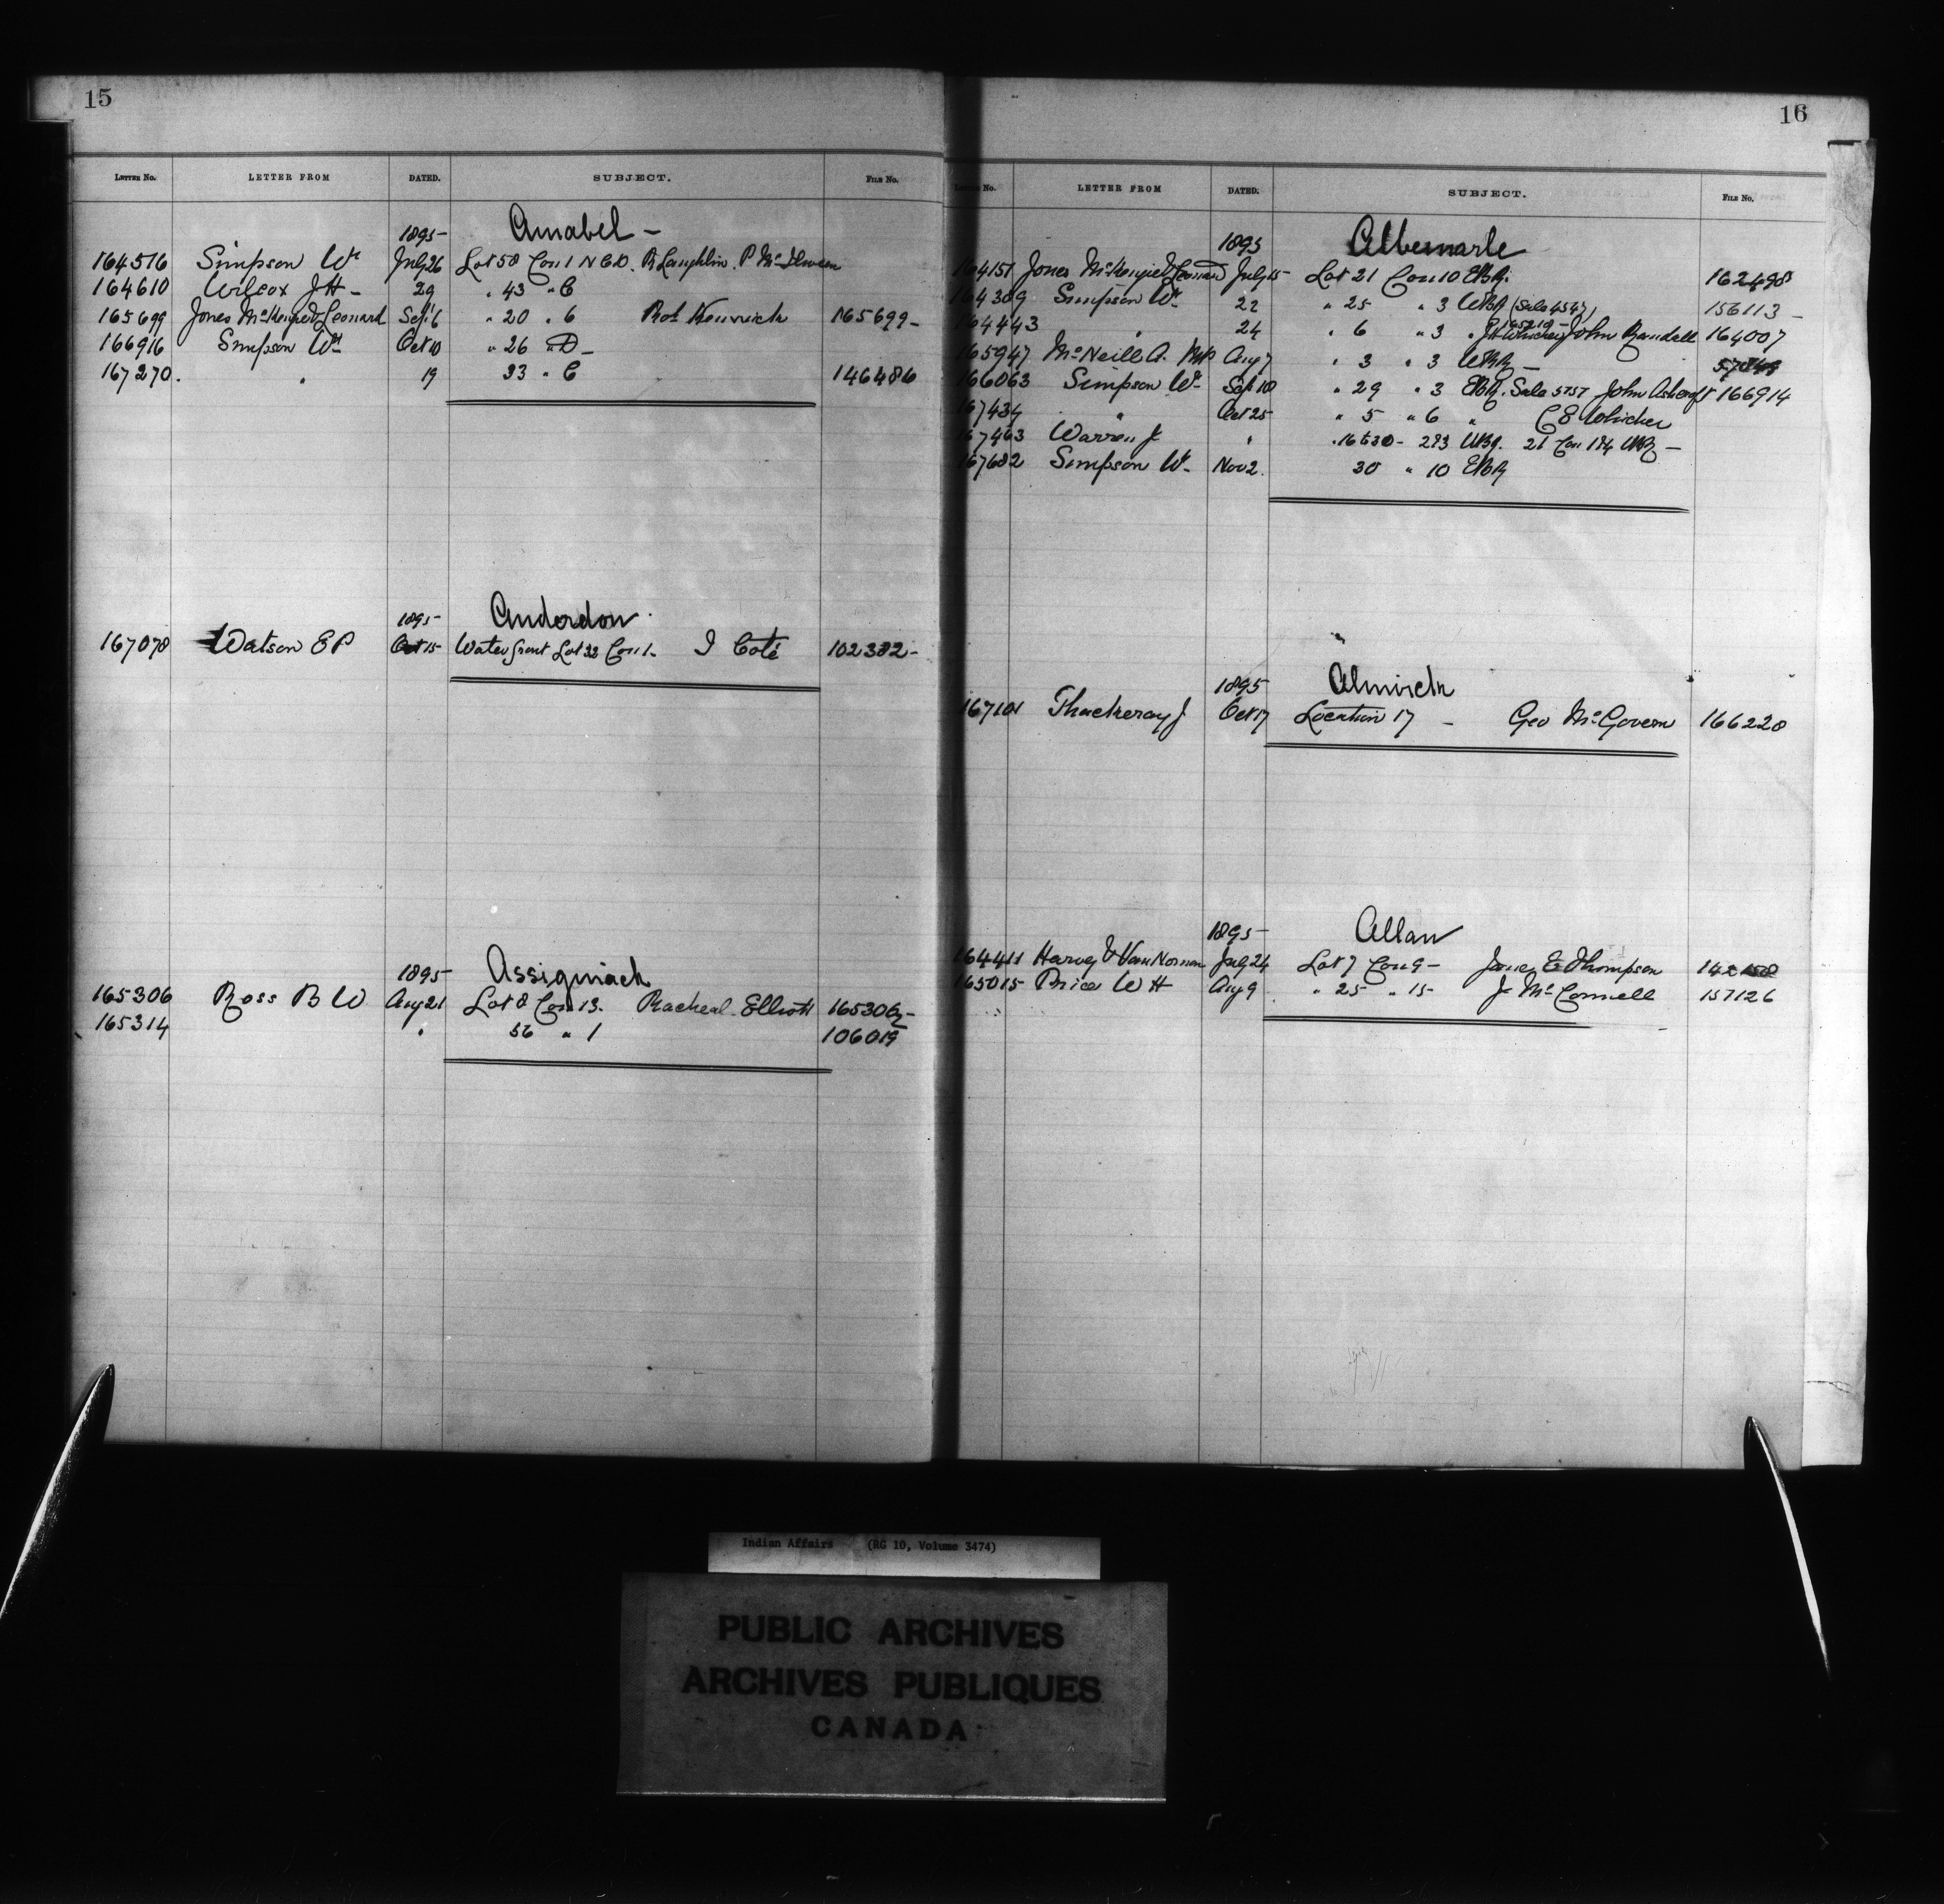 15
LETTER No. LETTER FROM DATED. SUBJECT. FILE No.
1895- Amabel -
164516 Simpson Wm July 26 Lot 58 Con 1 N C D. R Laughlin. P Mc
164610 Wilcox J H - 29 " 43 " C
165699 Jones McKenzie & Leonard Sept 6 " 20 " 6 Rob Kenrick 165699-
166916 Simpson Wm Oct 10 " 26 " D -
167270. " 19 33 " C 146486
1895- Anderdon
167078 Watson E P Oct 15- Water front Lot 22 Con 1- I Coté 102382-
1895- Assiginack
165306 Ross B W Aug 21 Lot 8 Con 13. Racheal Elliott 165306-
165314 " 56 " 1 106019
16
No. LETTER FROM DATED. SUBJECT. FILE No.
1895 Albemarle
164151 Jones McKenzie & Leonard July 15- Lot 21 Con 10 EBR. 162498
164309 Simpson Wm 22 " 25 " 3 WBR (Sale 4547) 156113 -
164443 " 24 " 6 " 3 " John Randall 164007
165947 McNeill A. MP Aug 7 " 3 " 3 WBR -
166063 Simpson Wm Sept 10 " 29 " 3 EBR. Sale 5757 John Ashcroft 166914
167434 " Oct 25 " 5 " 6 " C E Whicher
167463 Warren J " 16 & 30 - 2 & 3 WBR. 21 Con WBR -
167682 Simpson Wm Nov 2. 30 " 10 EBR
1895 Alnwick
167101 Thackeray J Oct 17 Location 17 - Geo McGovern 166228
1895- Allan
164411 Harvey & Van Norman July 24 Lot 7 Con 9- E Thompson
165015 Price W H Aug 9 " 25 " 15- J McConnell 157126
Indian Affairs (RG 10, Volume 3474)
PUBLIC ARCHIVES
ARCHIVES PUBLIQUES
CANADA